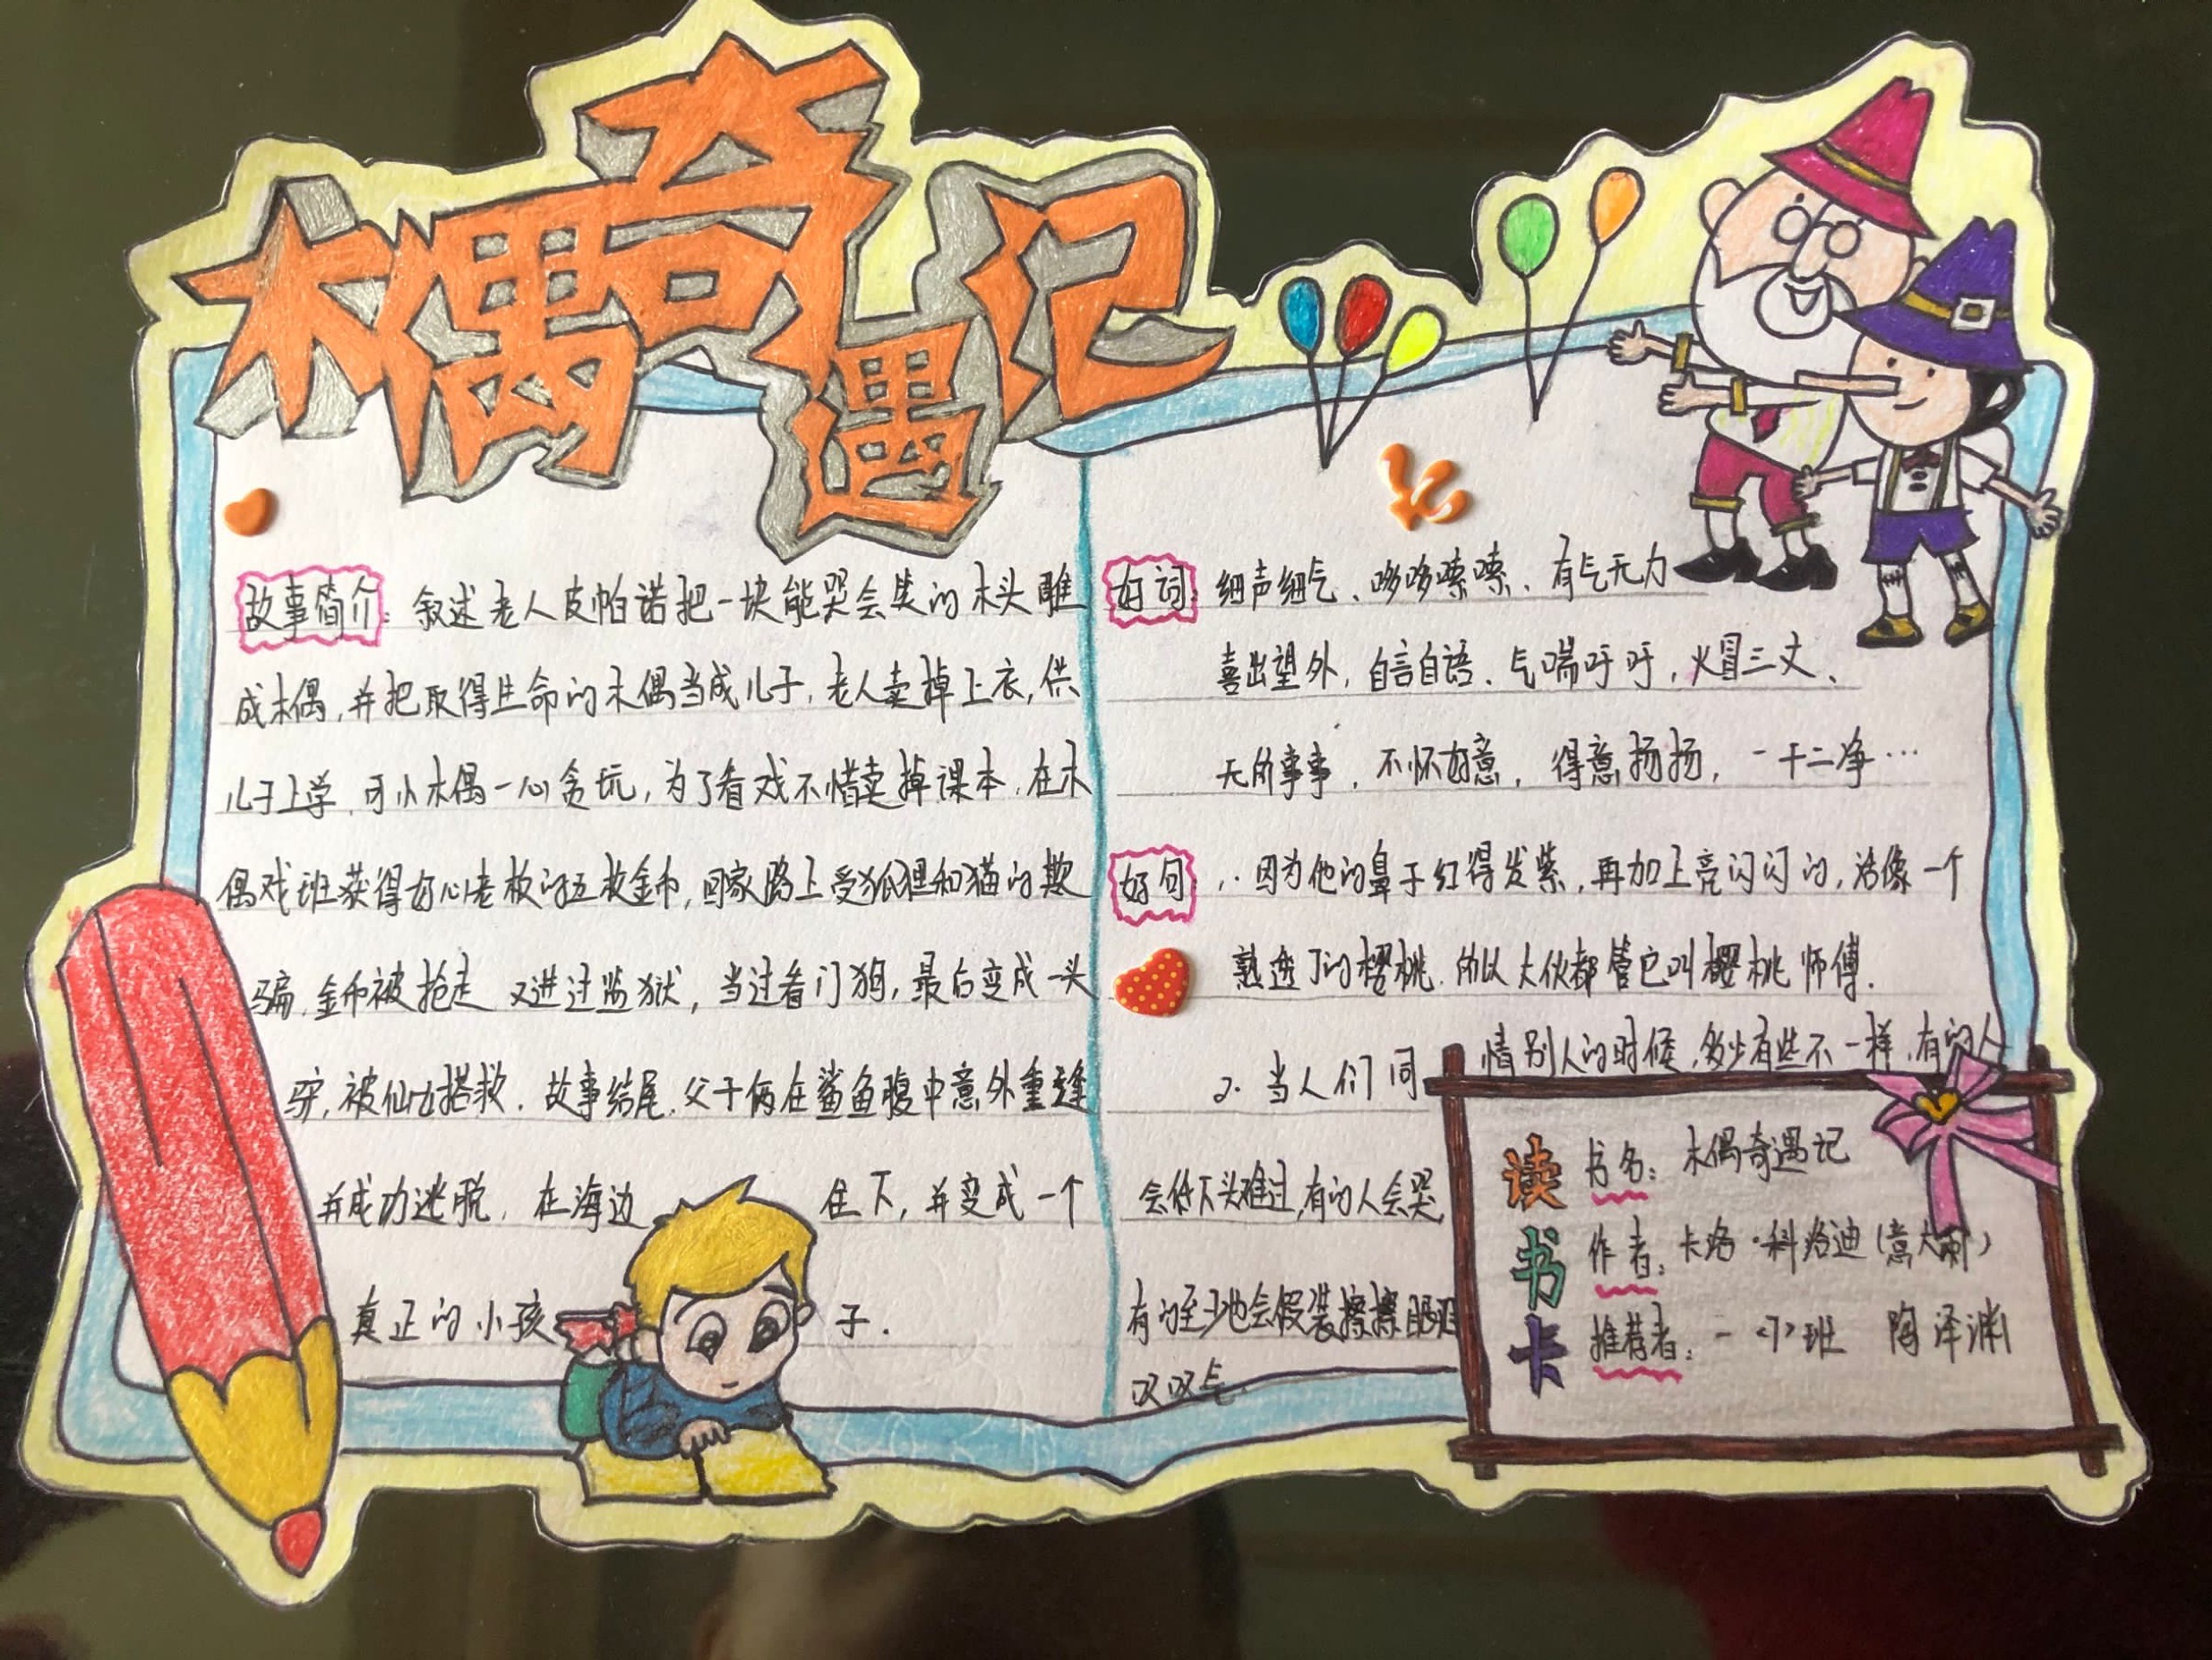 木偶奇遇记
故事简介：叙述老人皮帕诺把一块能哭会笑的木头雕
成木偶，并把取得生命的木偶当成儿子，老人卖掉上衣，供
儿子上学，可小木偶一心贪玩，为了看戏不惜卖掉课本，在木
偶戏班获得好心老板的五枚金币，回家路上受狐狸和猫的欺
骗，金币被抢走 又进过监狱，当过看门狗，最后变成一头
驴，被仙女搭救．故事结尾，父子俩在鲨鱼腹中意外重逢
并成功逃脱，在海边 住下，并变成一个
真正的小孩 子．
好词：细声细气、哆哆嗦嗦、有气无力
喜出望外，自言自语、气喘吁吁，火冒三丈、
无所事事，不怀好意，得意扬扬，一干二净…
好句：1.因为他的鼻子红得发紫，再加上亮闪闪的，活像一个
熟透了的樱桃．所以大伙都管它叫樱桃师傅．
2．当人们同情别人的时候，多少有些不一样，有的人
会低下头难过，有的人会哭
有的至少也会假装擦擦眼泪
叹叹气．
读书卡
书名：木偶奇遇记
作者：卡洛·科洛迪（意大利）
推荐者：一〈7〉班 陶泽渊